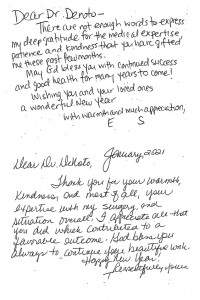 Dear Dr. Denoto-
There are not enough words to express
my deep gratitude for the medical expertise,
patience and kindness that you have gifted
me these past few months.
May God bless you with continued success
and good health for many years to come!
Wishing you and your loved ones
a wonderful New Year
with warmth and much appreciation,
E S
Dear Dr. DeNoto, January, 2021
Thank you for your warmth,
Kindness, and most of all, your
expertise with my surgery, and
situation overall. I appreciate all that
you did which contributed to a
favorable outcome. God bless you
always to continue your beautiful work.
Happy New Year!
Respectfully yours